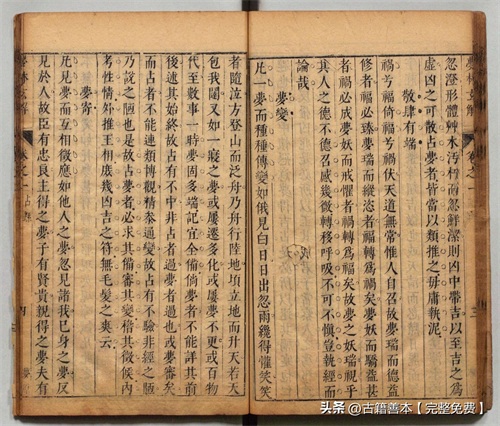 忽澄形體艸木汚朽而忽鮮潔則凶中帶吉以至吉之爲
虛凶之可散占夢者皆當以類推之毋庸執泥
敬肆有端
禍兮福倚福兮禍伏天道無常惟人自召故夢瑞而德益
修者福必臻夢瑞而縱恣者福轉爲禍矣夢妖而驕益甚
者禍必成夢妖而戒懼者禍轉爲福矣故夢之妖瑞視乎
其人之德不德召感幾微轉移呼吸不可不愼豈執經而
論哉
夢變
凡一夢而種種傳變如俄見白日日出忽雨纔得懽笑矣
者隨泣方登山而泛舟乃舟行陸地頃立地而升天若天
包我闔又如一癡之夢或屢遷多化或屢夢不更或百物
代至數事一時夢固多端記宜全備倘夢者不能詳其前
後述其始終故占有不中非占者過夢者過也或夢審矣
而占者不能連類博觀精參通變故占有不驗非經之陋
乃說之陋也是故占夢者必求其備審其變稽其徵候內
考性情外推王相庶幾凶吉之符無毛髮之爽云
夢寄
凡見夢而互相徵應如他人之夢忽見諸我已身之夢反
見於人故臣有忠良主得之夢子有賢貴親得之夢夫有
卷之一
頭条 @古籍善本【完整免费】